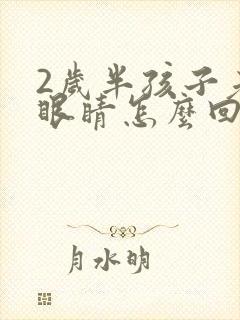 2歲半孩子
眼睛怎麼回
月水明